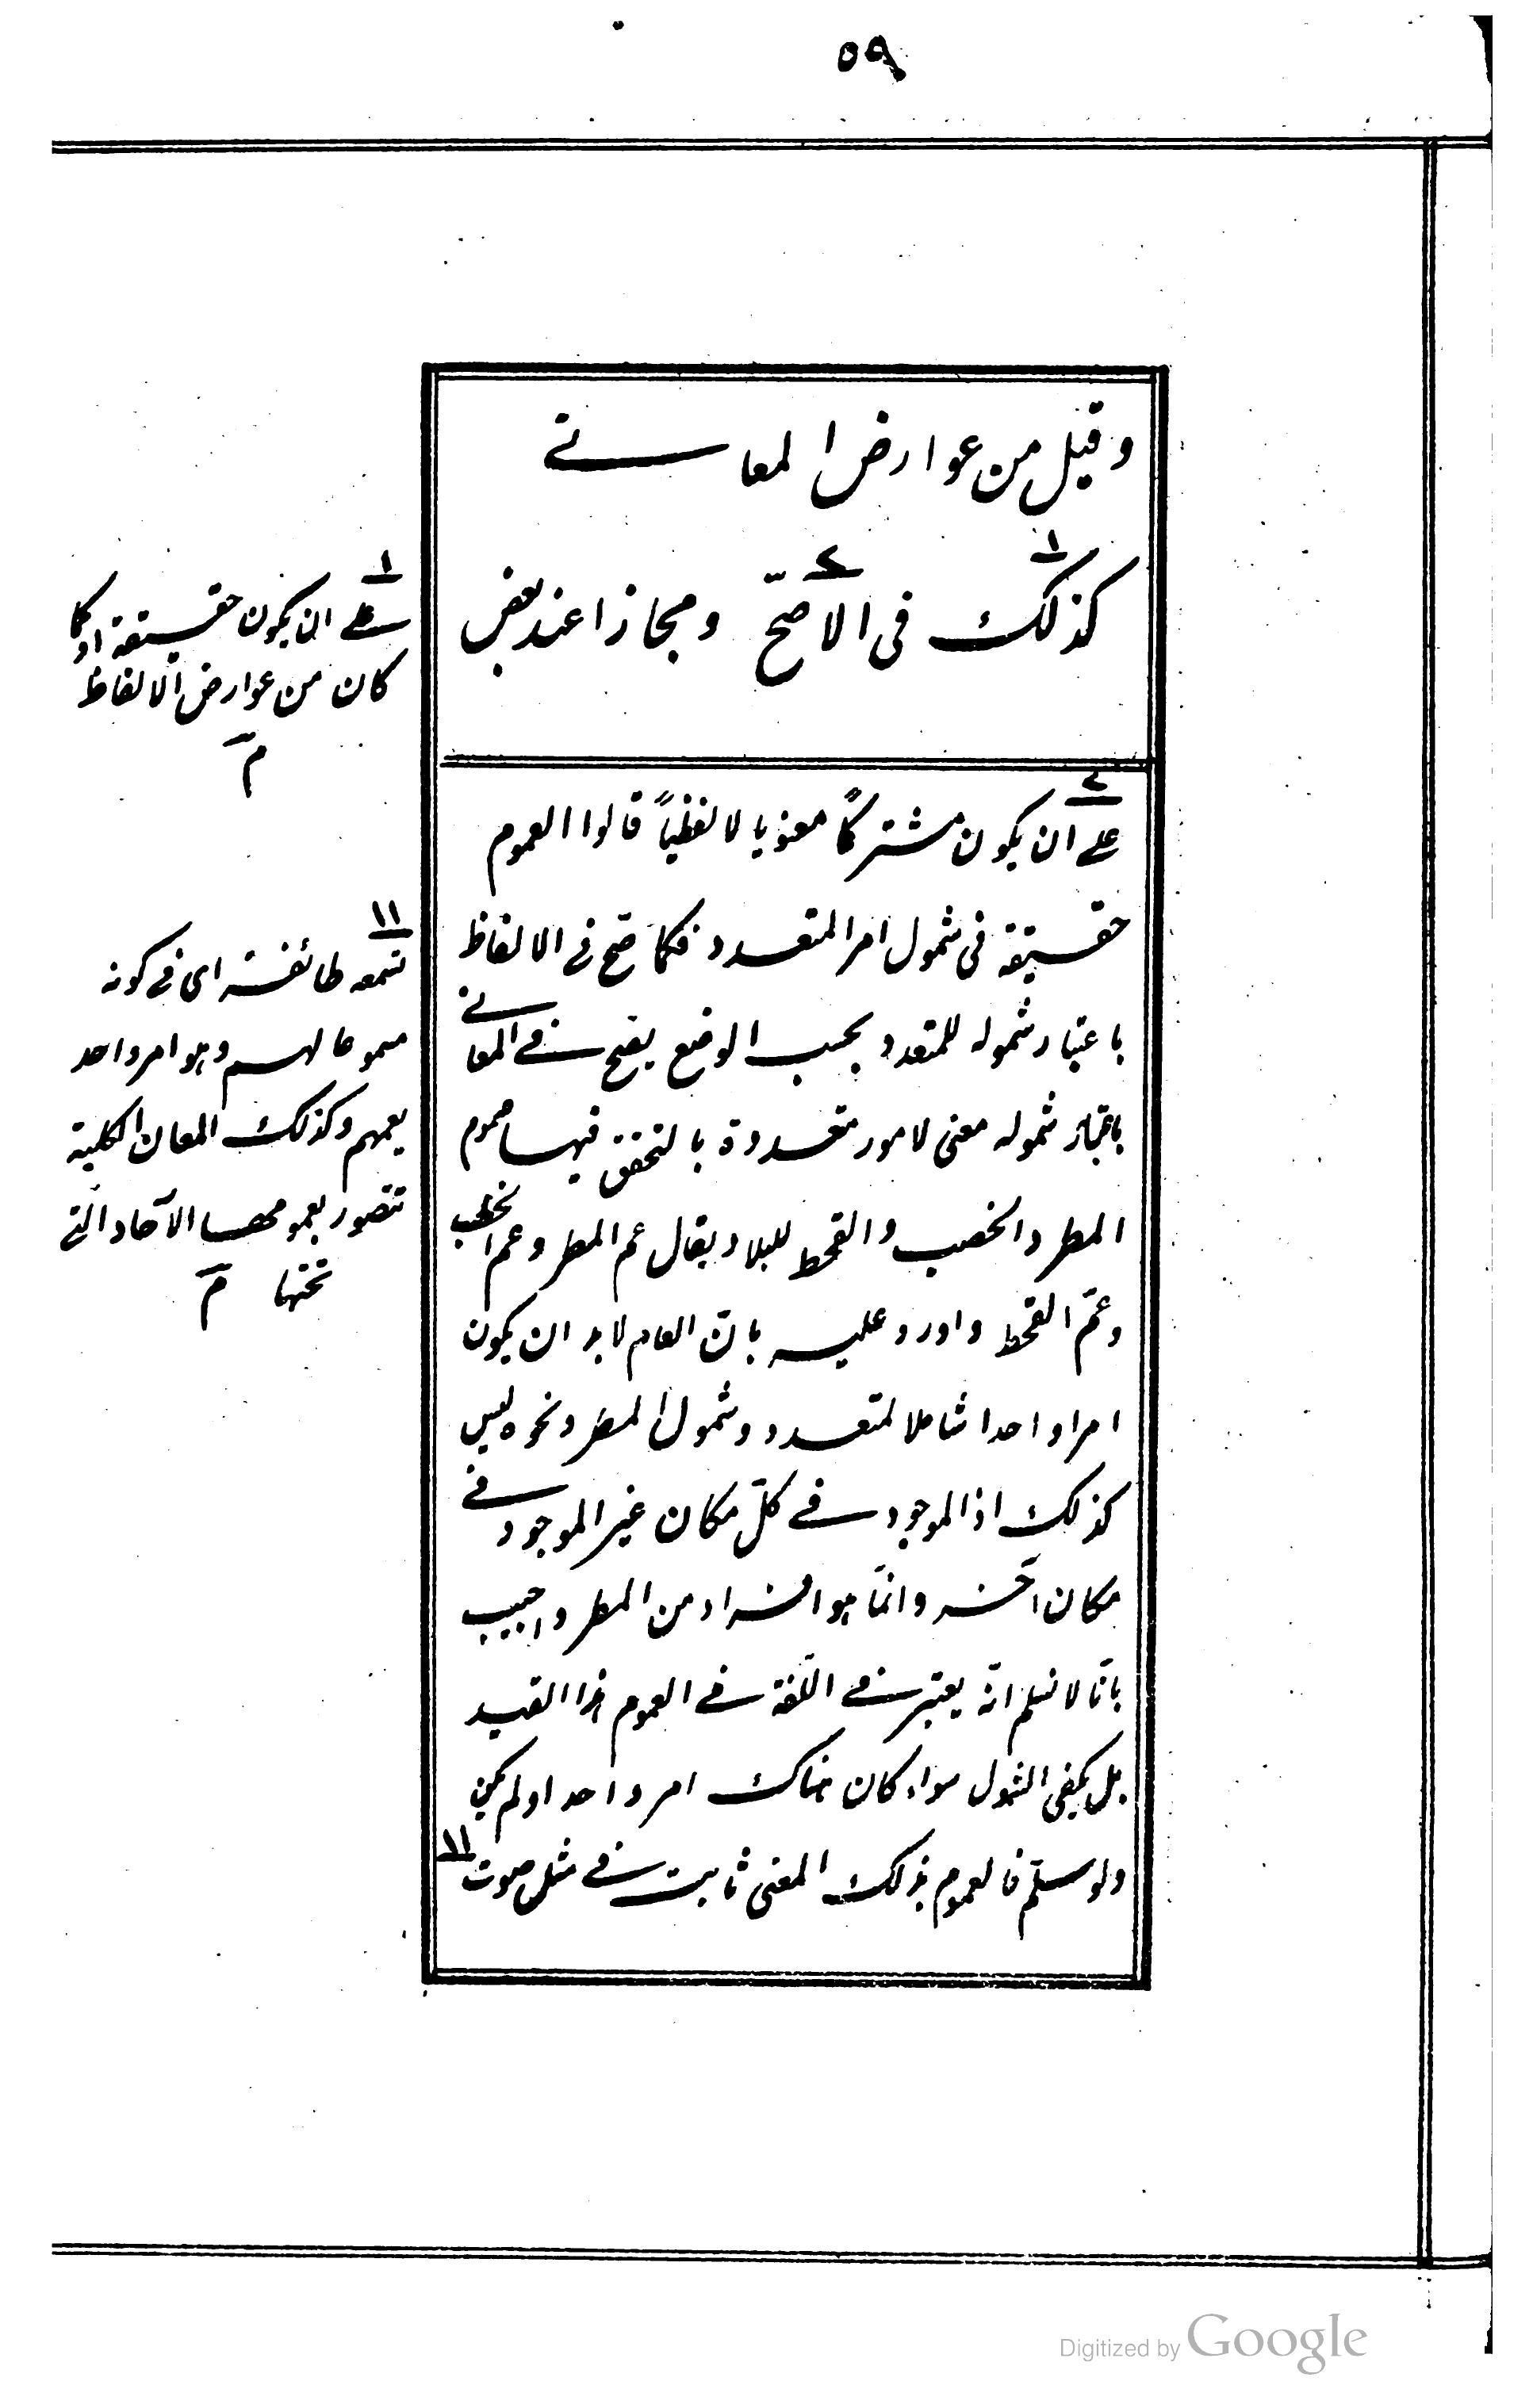 ٥٩
وقيل من عوارض المعانے
١ ٢
كذلك فى الاصحّ ومجازا عند بعض
٢
علے ان يكون مشتركاً معنويا لا لفظياً قالوا العموم
حقيقة فى شمول امر المتعدد فكما صحّ فے الالفاظ
باعتبار شموله للمتعدد بحسب الوضع يصح فے المعانے
باعتبار شموله معنى لامور متعددة بالتحقق فيها عموم
المطر والخصب والقحط للبلاد يقال عم المطر وعم الخصب
وعمّ القحط واورد عليه بانّ العام لابد ان يكون
امرا واحدا شاملا لمتعدد وشمول المطر ونحوه ليس
كذلك اذ الموجود فے كلّ مكان غير الموجود فے
مكان آخر وانّما هو افراد من المطر واجيب
بانّا لا نسلم انّه يعتبر فے اللّغة فے العموم هذا القيد
بل يكفى الشمول سواء كان هناك امر واحد او لم يكن
ولو سلّم فالعموم بذلك المعنى ثابت فے مثل صوت ١١
١
علے ان يكون حقيقة اذ كما
كان من عوارض الالفاظ
م
١١
تسمعه طائفة اى فے كونه
مسموعا لهم وهو امر واحد
يعمهم وكذلك المعان الكلية
تتصور بعمومها الآحاد الّتى
تحتها م
Digitized by Google